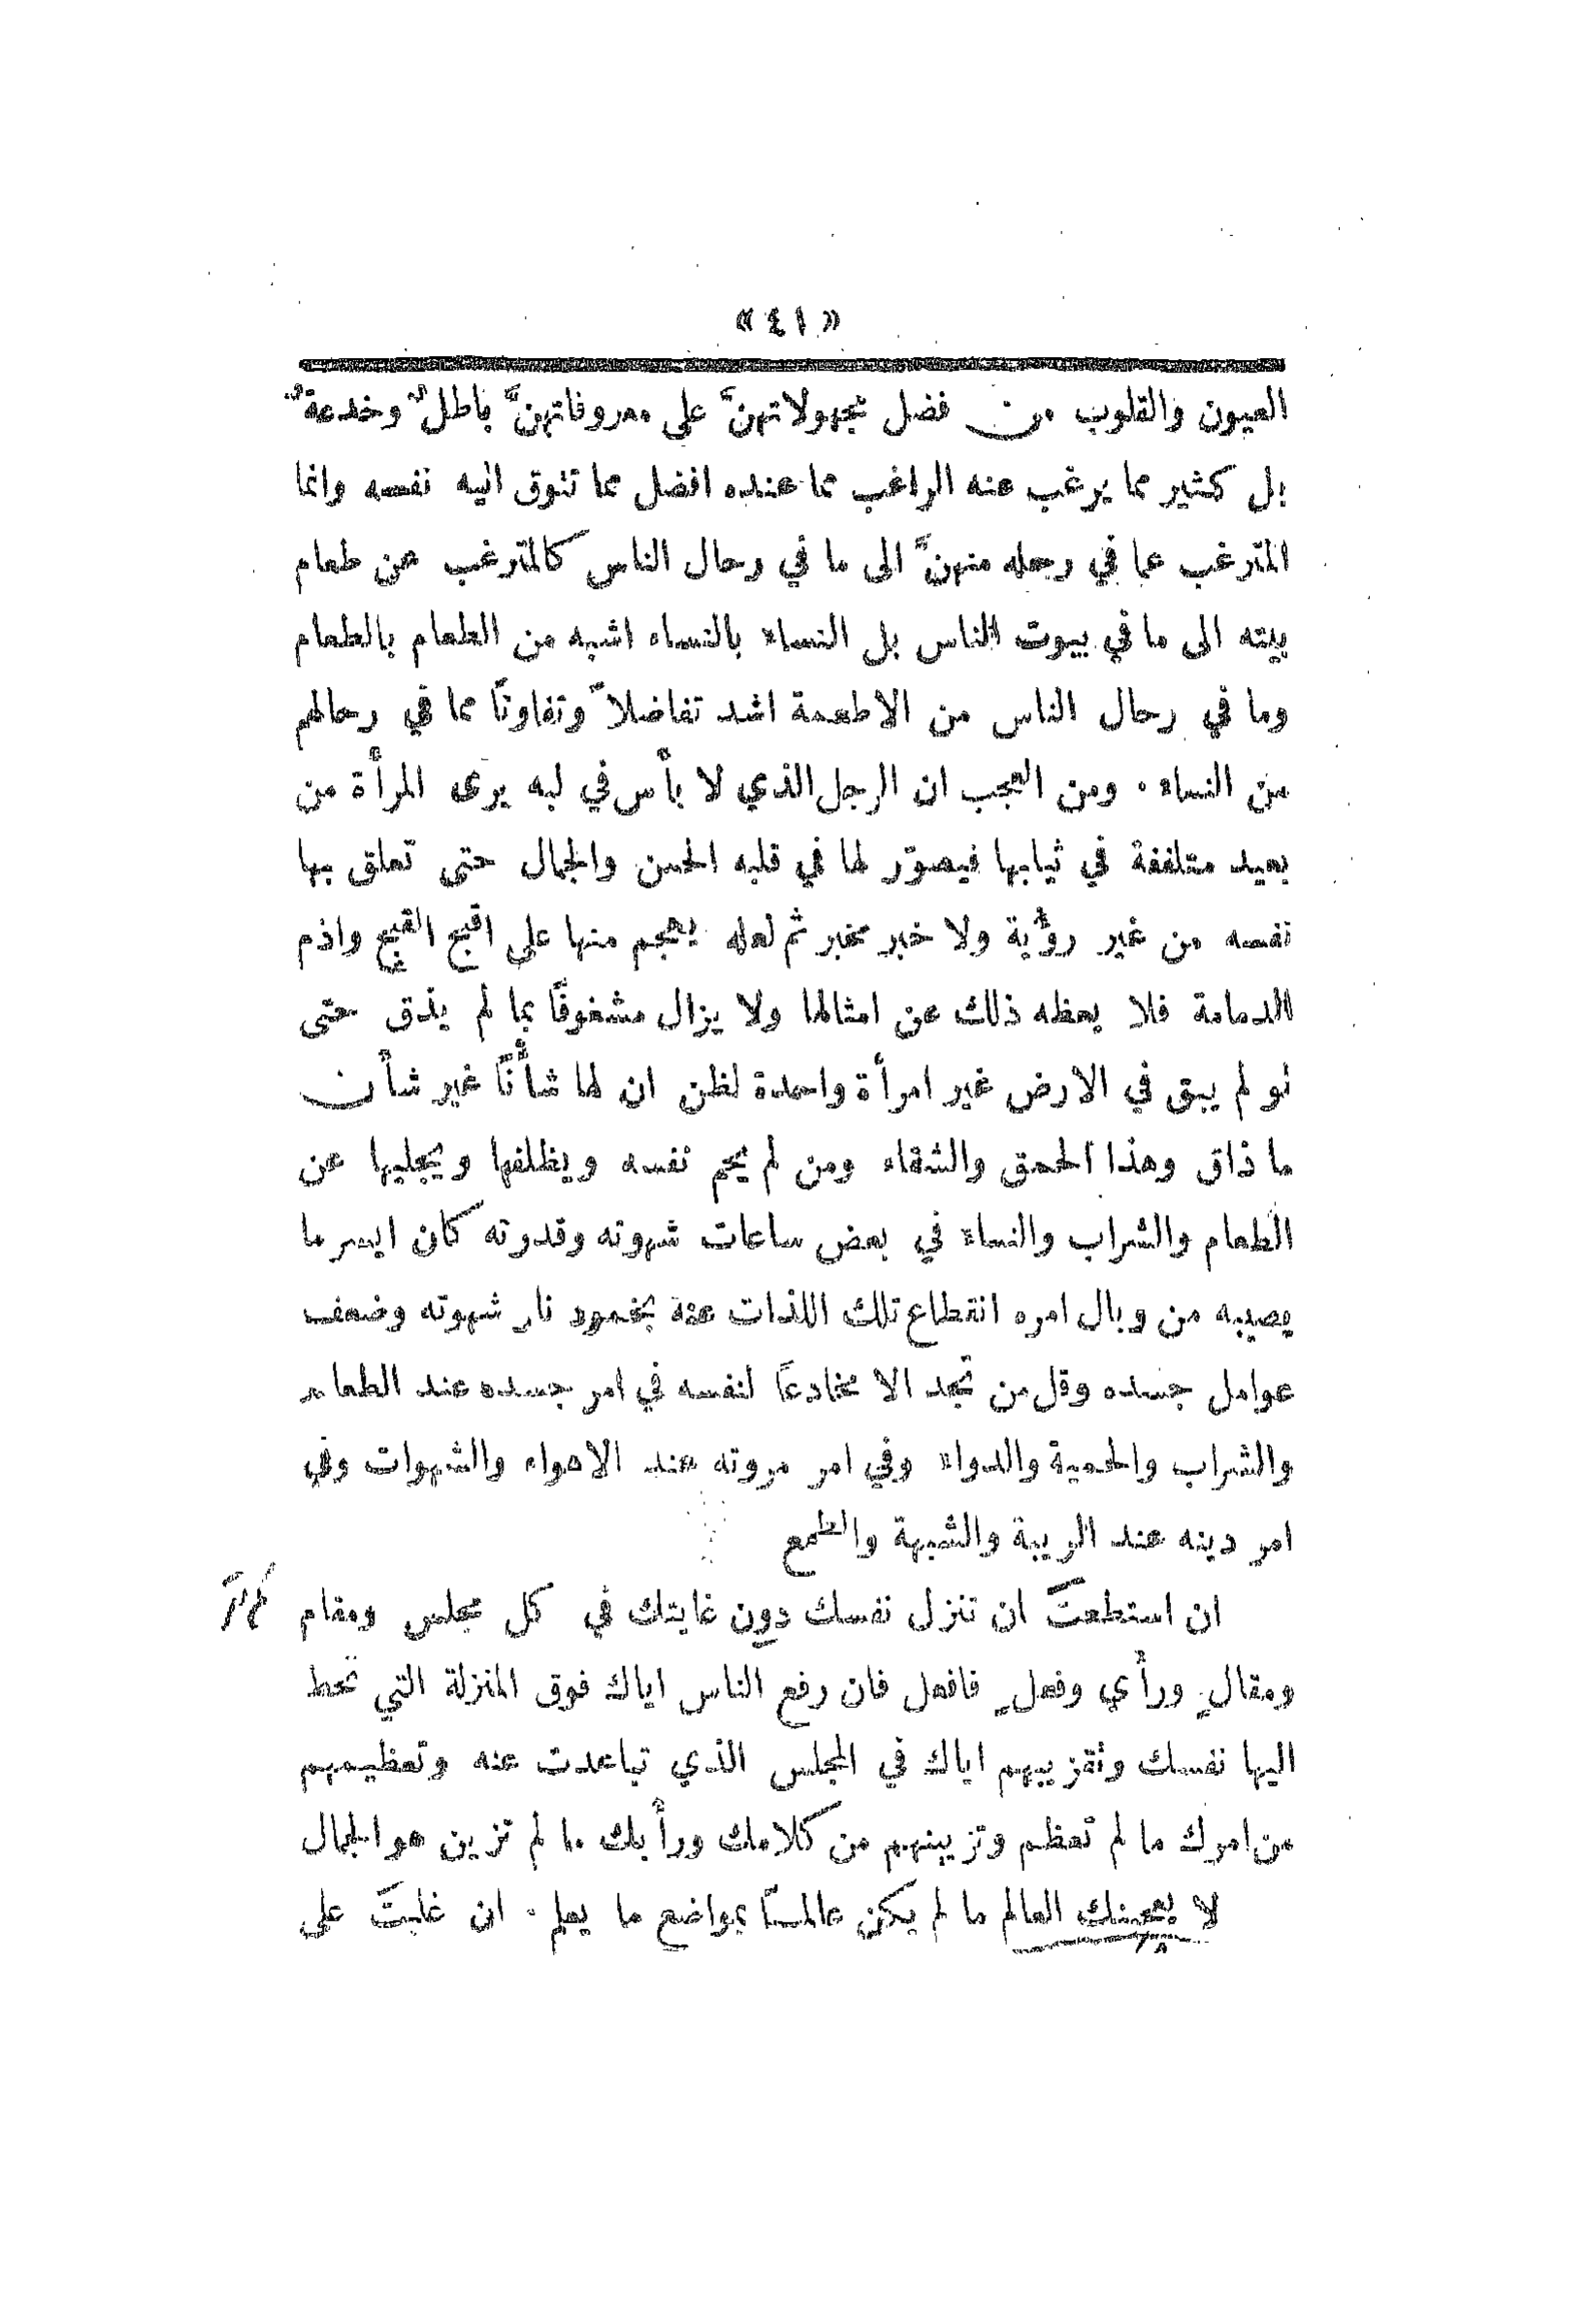 « ٤١ »
العيون والقلوب من فضل مجهولاتهنَّ على معروفاتهنَّ باطلٌ وخدعةٌ
بل كثير مما يرغب عنه الراغب مما عنده افضل مما تتوق اليه نفسه وانما
المترغب عما في رحله منهنَّ الى ما في رحال الناس كالمترغب عن طعام
بيته الى ما في بيوت الناس بل النساء بالنساء اشبه من الطعام بالطعام
وما في رحال الناس من الاطعمة اشد تفاضلاً وتفاوتًا مما في رحالهم
من النساء . ومن العجب ان الرجل الذي لا بأس في لبه يرى المرأة من
بعيد متلففة في ثيابها فيصوّر لها في قلبه الحسن والجمال حتى تعلق بها
نفسه من غير رؤية ولا خبر مخبر ثم لعله يهجم منها على اقبح القبح واذم
الدمامة فلا يعظه ذلك عن امثالها ولا يزال مشغوفًا بما لم يذق حتى
لو لم يبق في الارض غير امرأة واحدة لظن ان لها شأنًا غير شأن
ما ذاق وهذا الحمق والشقاء ومن لم يحم نفسه ويظلفها ويجليها عن
الطعام والشراب والنساء في بعض ساعات شهوته وقدرته كان ايسر ما
يصيبه من وبال امره انقطاع تلك اللذات عنه بخمود نار شهوته وضعف
عوامل جسده وقل من تجد الا مخادعًا لنفسه في امر جسده عند الطعام
والشراب والحمية والدواء وفي امر مروته عند الاهواء والشهوات وفي
امر دينه عند الريبة والشبهة والطمع
ان استطعتَ ان تنزل نفسك دون غايتك في كل مجلس ومقام
ومقالٍ ورأي وفعلٍ فافعل فان رفع الناس اياك فوق المنزلة التي تحط
اليها نفسك وتقريبهم اياك في المجلس الذي تباعدت عنه وتعظيمهم
من امرك ما لم تعظم وتزيينهم من كلامك ورأيك ما لم تزين هو الجمال
لا يعجبنك العالم ما لم يكن عالمـًا بمواضع ما يعلم . ان غلبتَ على